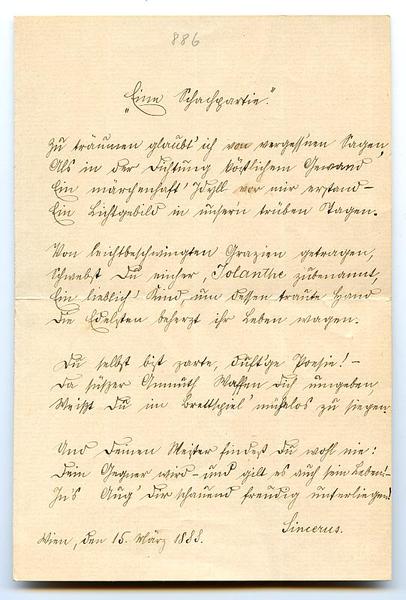 886
„Eine Schachpartie."
Zu träumen glaubt' ich von vergess'nen Sagen,
Als in der Dichtung köstlichem Gewand
Ein märchenhaft' Idyll vor mir erstand –
Ein Lichtgebild in unsern trüben Tagen.
Von leichtbeschwingten Grazien getragen,
Schwebst Du einher, Iolanthe zubenannt,
Ein lieblich' Kind, um dessen traute Hand
Die Edelsten beherzt ihr Leben wagen.
Du selbst bist zarte, duft'ge Poesie! –
Da süßer Anmuth Waffen Dich umgeben,
Weißt Du im Brettspiel mühelos zu siegen.
Und Deinen Meister findest Du wohl nie:
Dein Gegner wird – und gilt es auch sein Leben! –
In's Aug Dir schauend freudig unterliegen!
Sincerus.
Wien, den 15. März 1888.